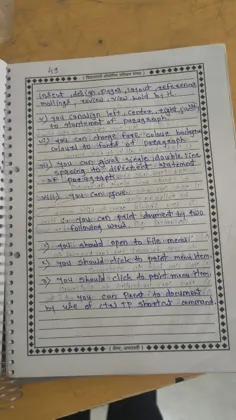 49
insert, design, pages, layout, references
mailings, review, view hold by it.
v) you can align left, center, right, justify
to statement of paragraph.
vi) you can change fore colour
colour to fonts of paragraph.
vii) you can give single, double line
spacing to different statement
of paragraph.
viii) you can give
you can print document by two
following word.
1) you should open to file menu.
2) you should click to print menu item.
3) you should click to print menu item.
you can print to document
by use of ctrl+P shortcut command.